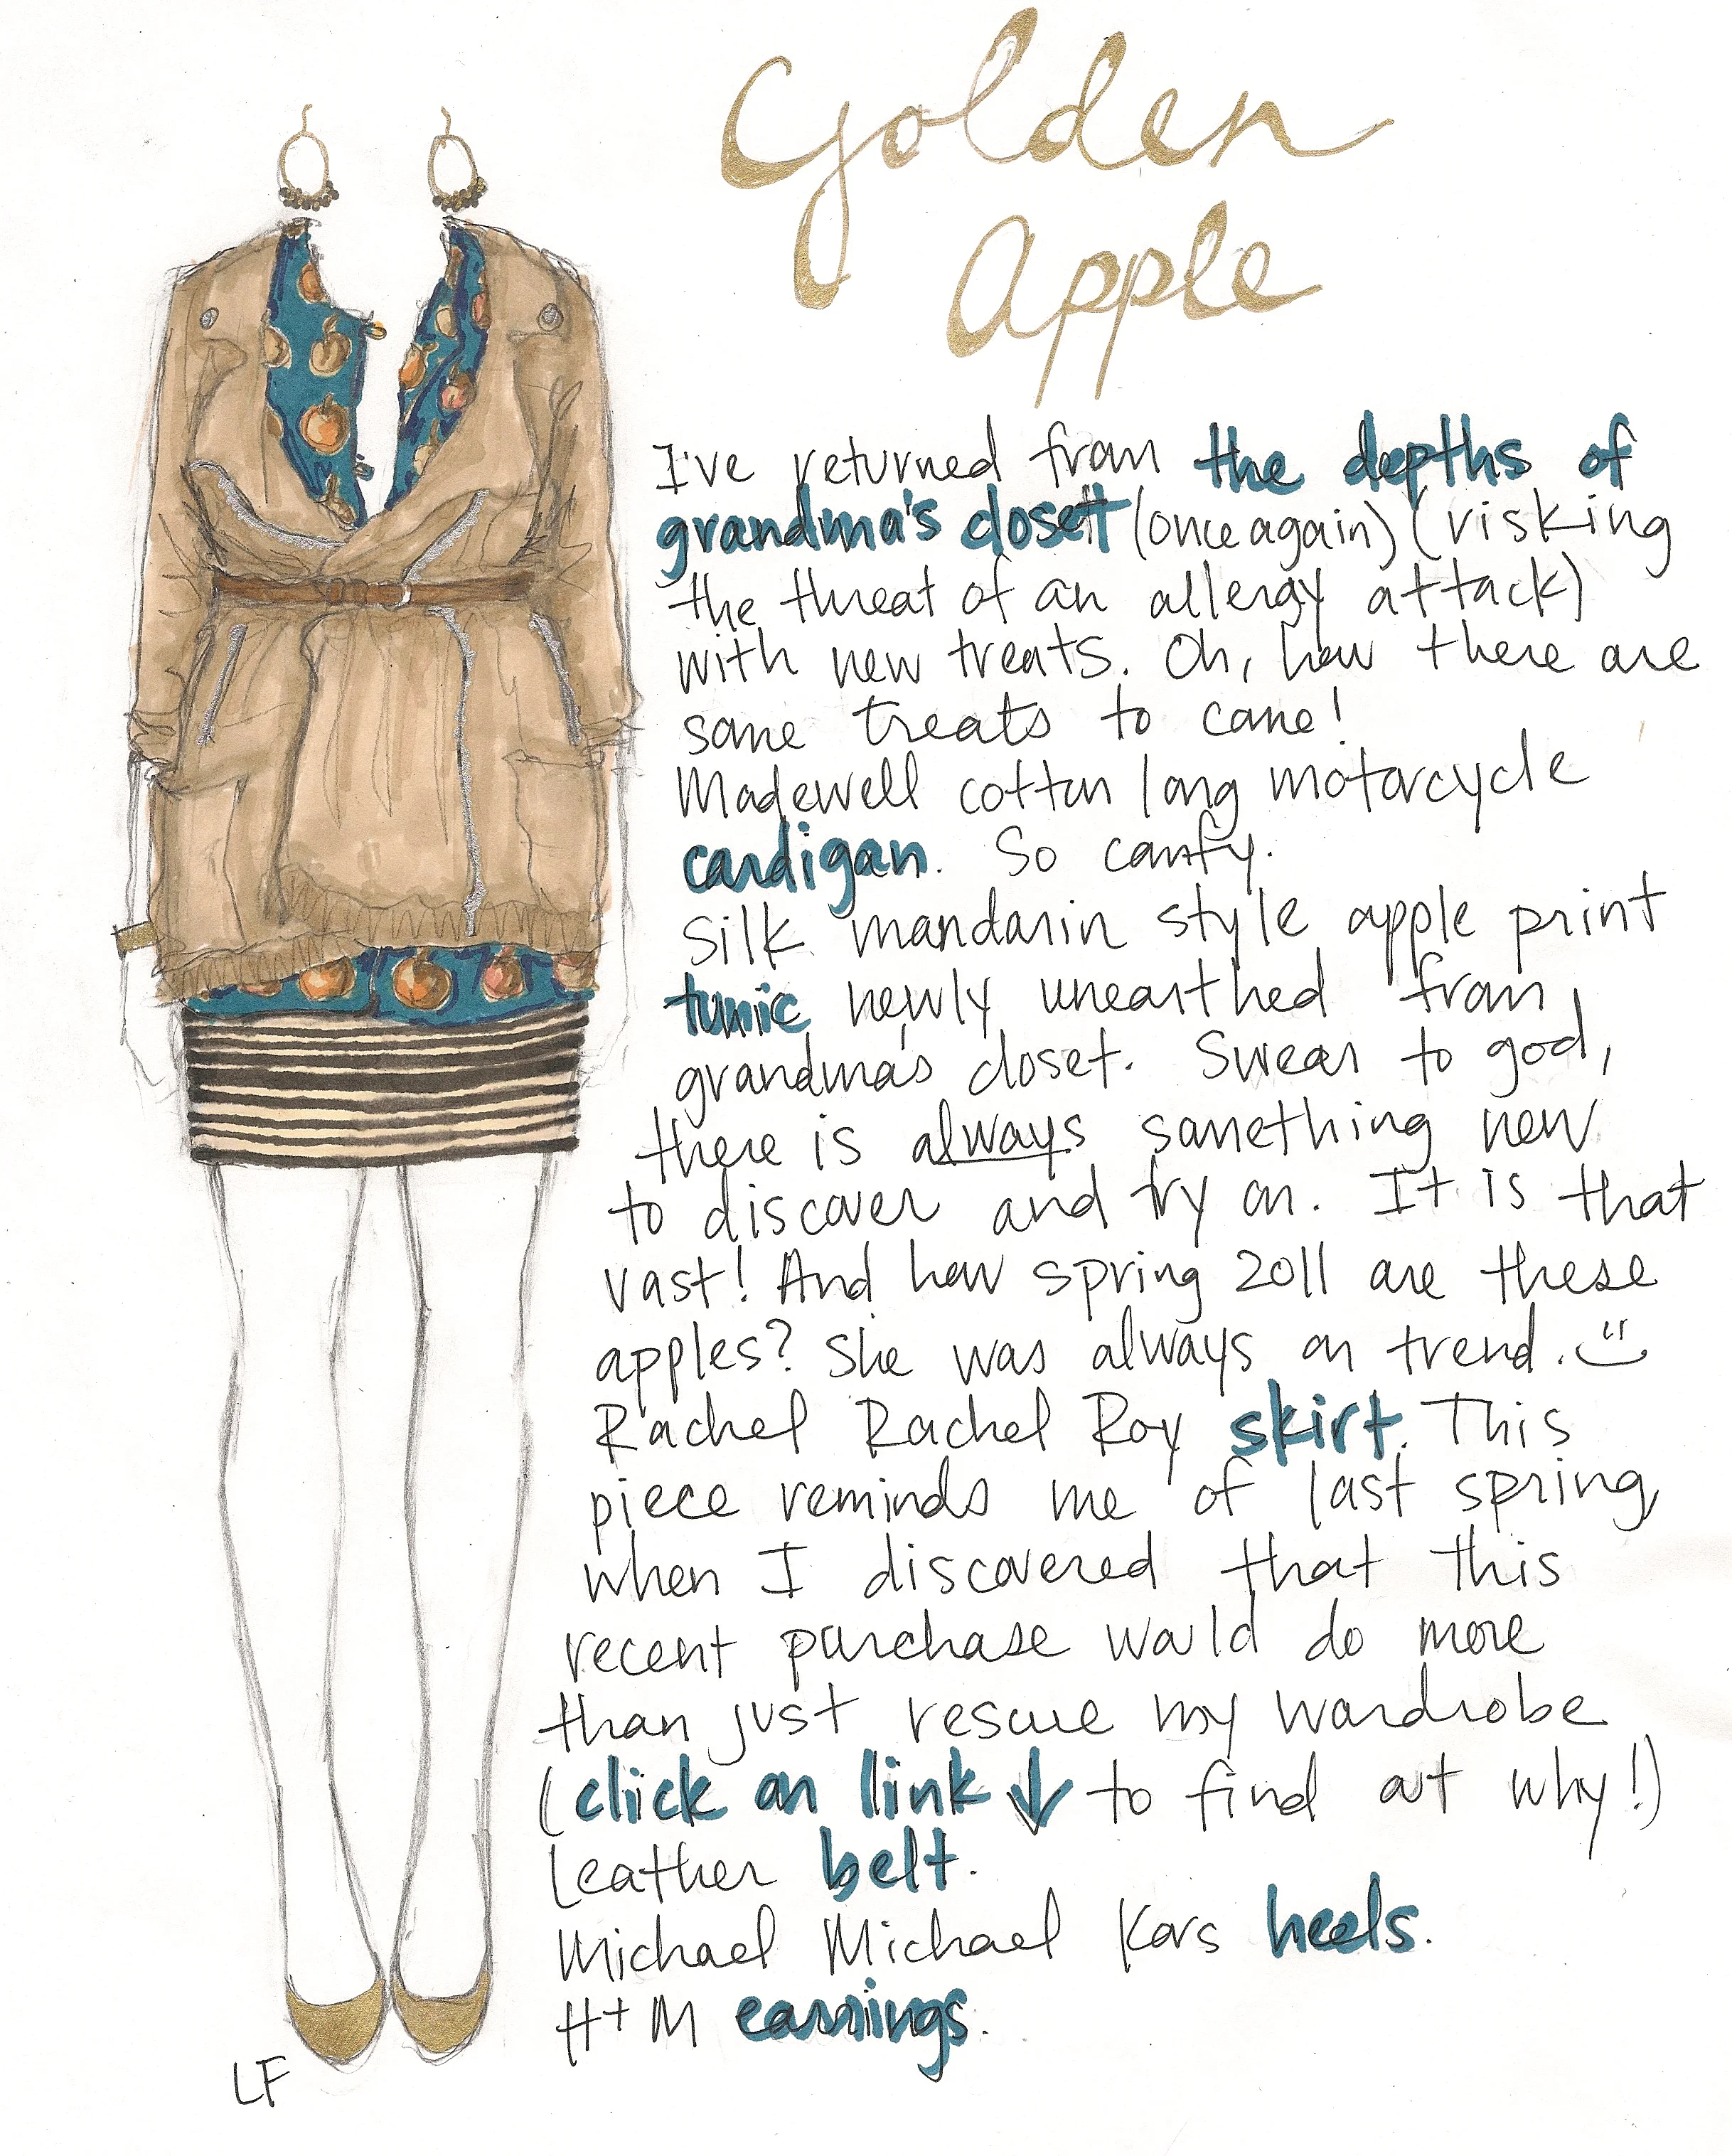 Golden
Apple
I've returned from the depths of
grandma's closet (once again) (risking
the threat of an allergy attack)
with new treats. Oh, how there are
some treats to come!
Madewell cotton long motorcycle
cardigan. So comfy.
Silk mandarin style apple print
tunic newly unearthed from
grandma's closet. Swear to god,
there is always something new
to discover and try on. It is that
vast! And how spring 2011 are these
apples? She was always on trend. :)
Rachel Rachel Roy skirt. This
piece reminds me of last spring,
when I discovered that this
recent purchase would do more
than just rescue my wardrobe
(click on link ↓ to find out why!)
Leather belt.
Michael Michael Kors heels.
H+M earrings.
LF